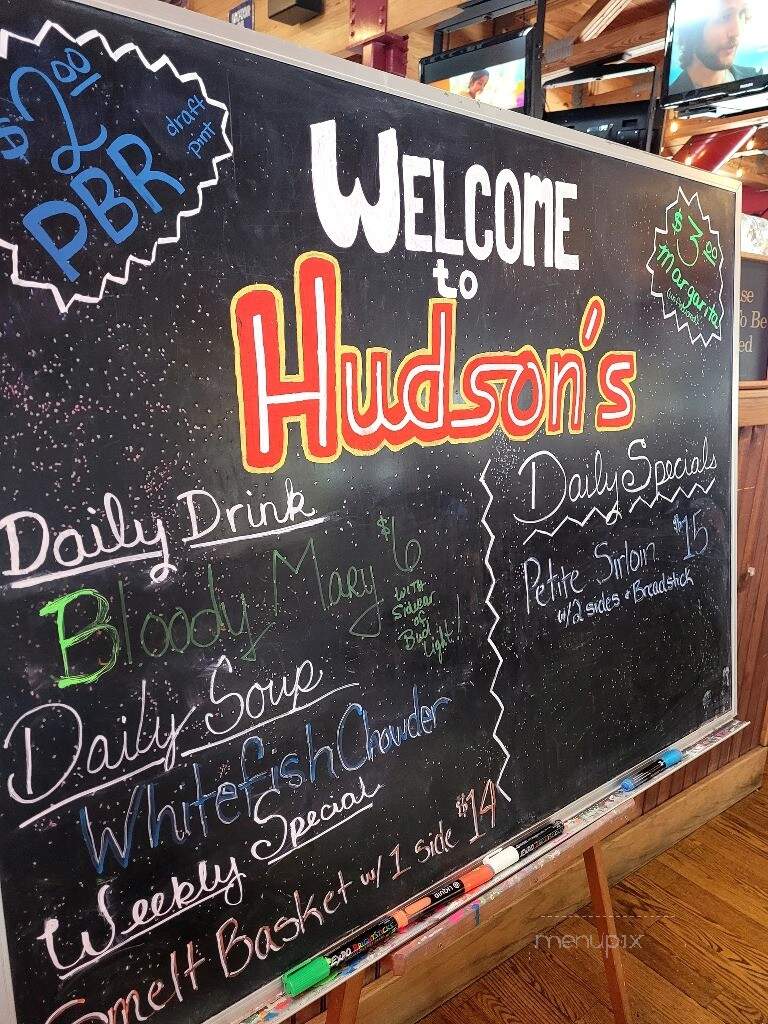 $2.00
PBR
draft
pint
WELCOME
to
Hudson's
$3.00
margarita
Daily Drink
Bloody Mary $6
WITH
Sidecar
of
Bud
Light!
Daily Soup
Whitefish Chowder
Weekly Special
Smelt Basket w/ 1 side $14
Daily Specials
Petite Sirloin $15
w/2 sides & Breadstick
To Be
menupix